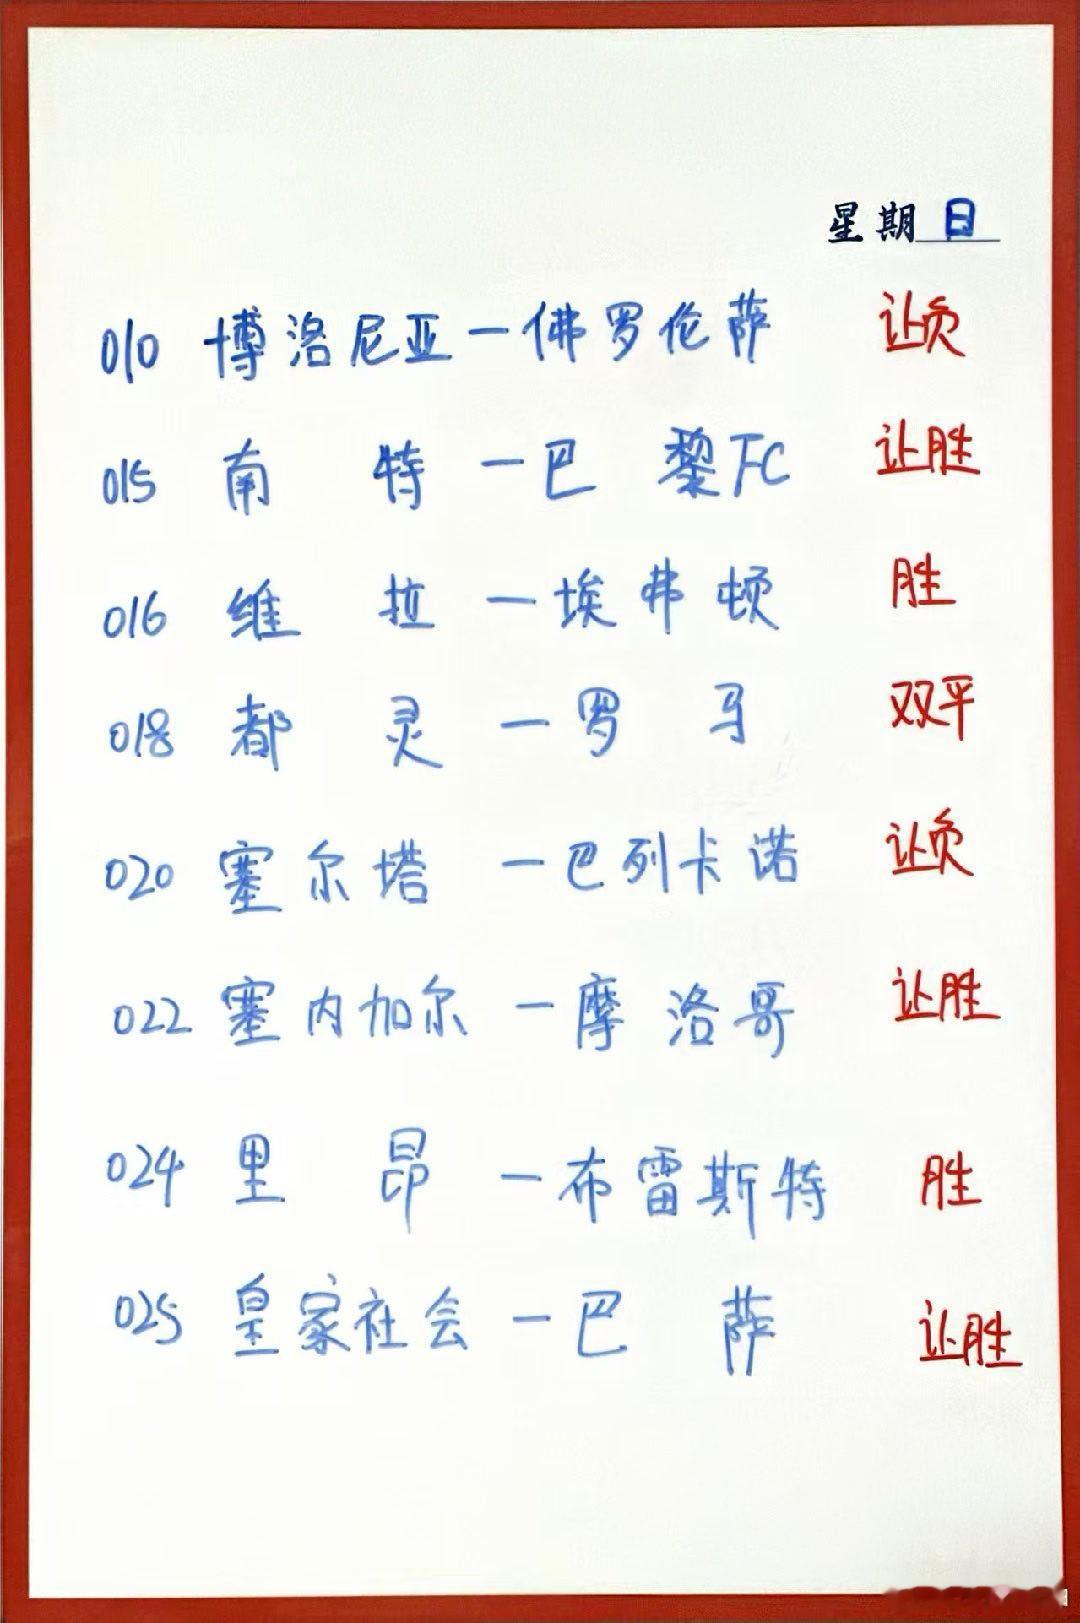 星期日
010 博洛尼亚一佛罗伦萨 让负
015 南特一巴黎FC 让胜
016 维拉一埃弗顿 胜
018 都灵一罗马 双平
020 塞尔塔一巴列卡诺 让负
022 塞内加尔一摩洛哥 让胜
024 里昂一布雷斯特 胜
025 皇家社会一巴萨 让胜